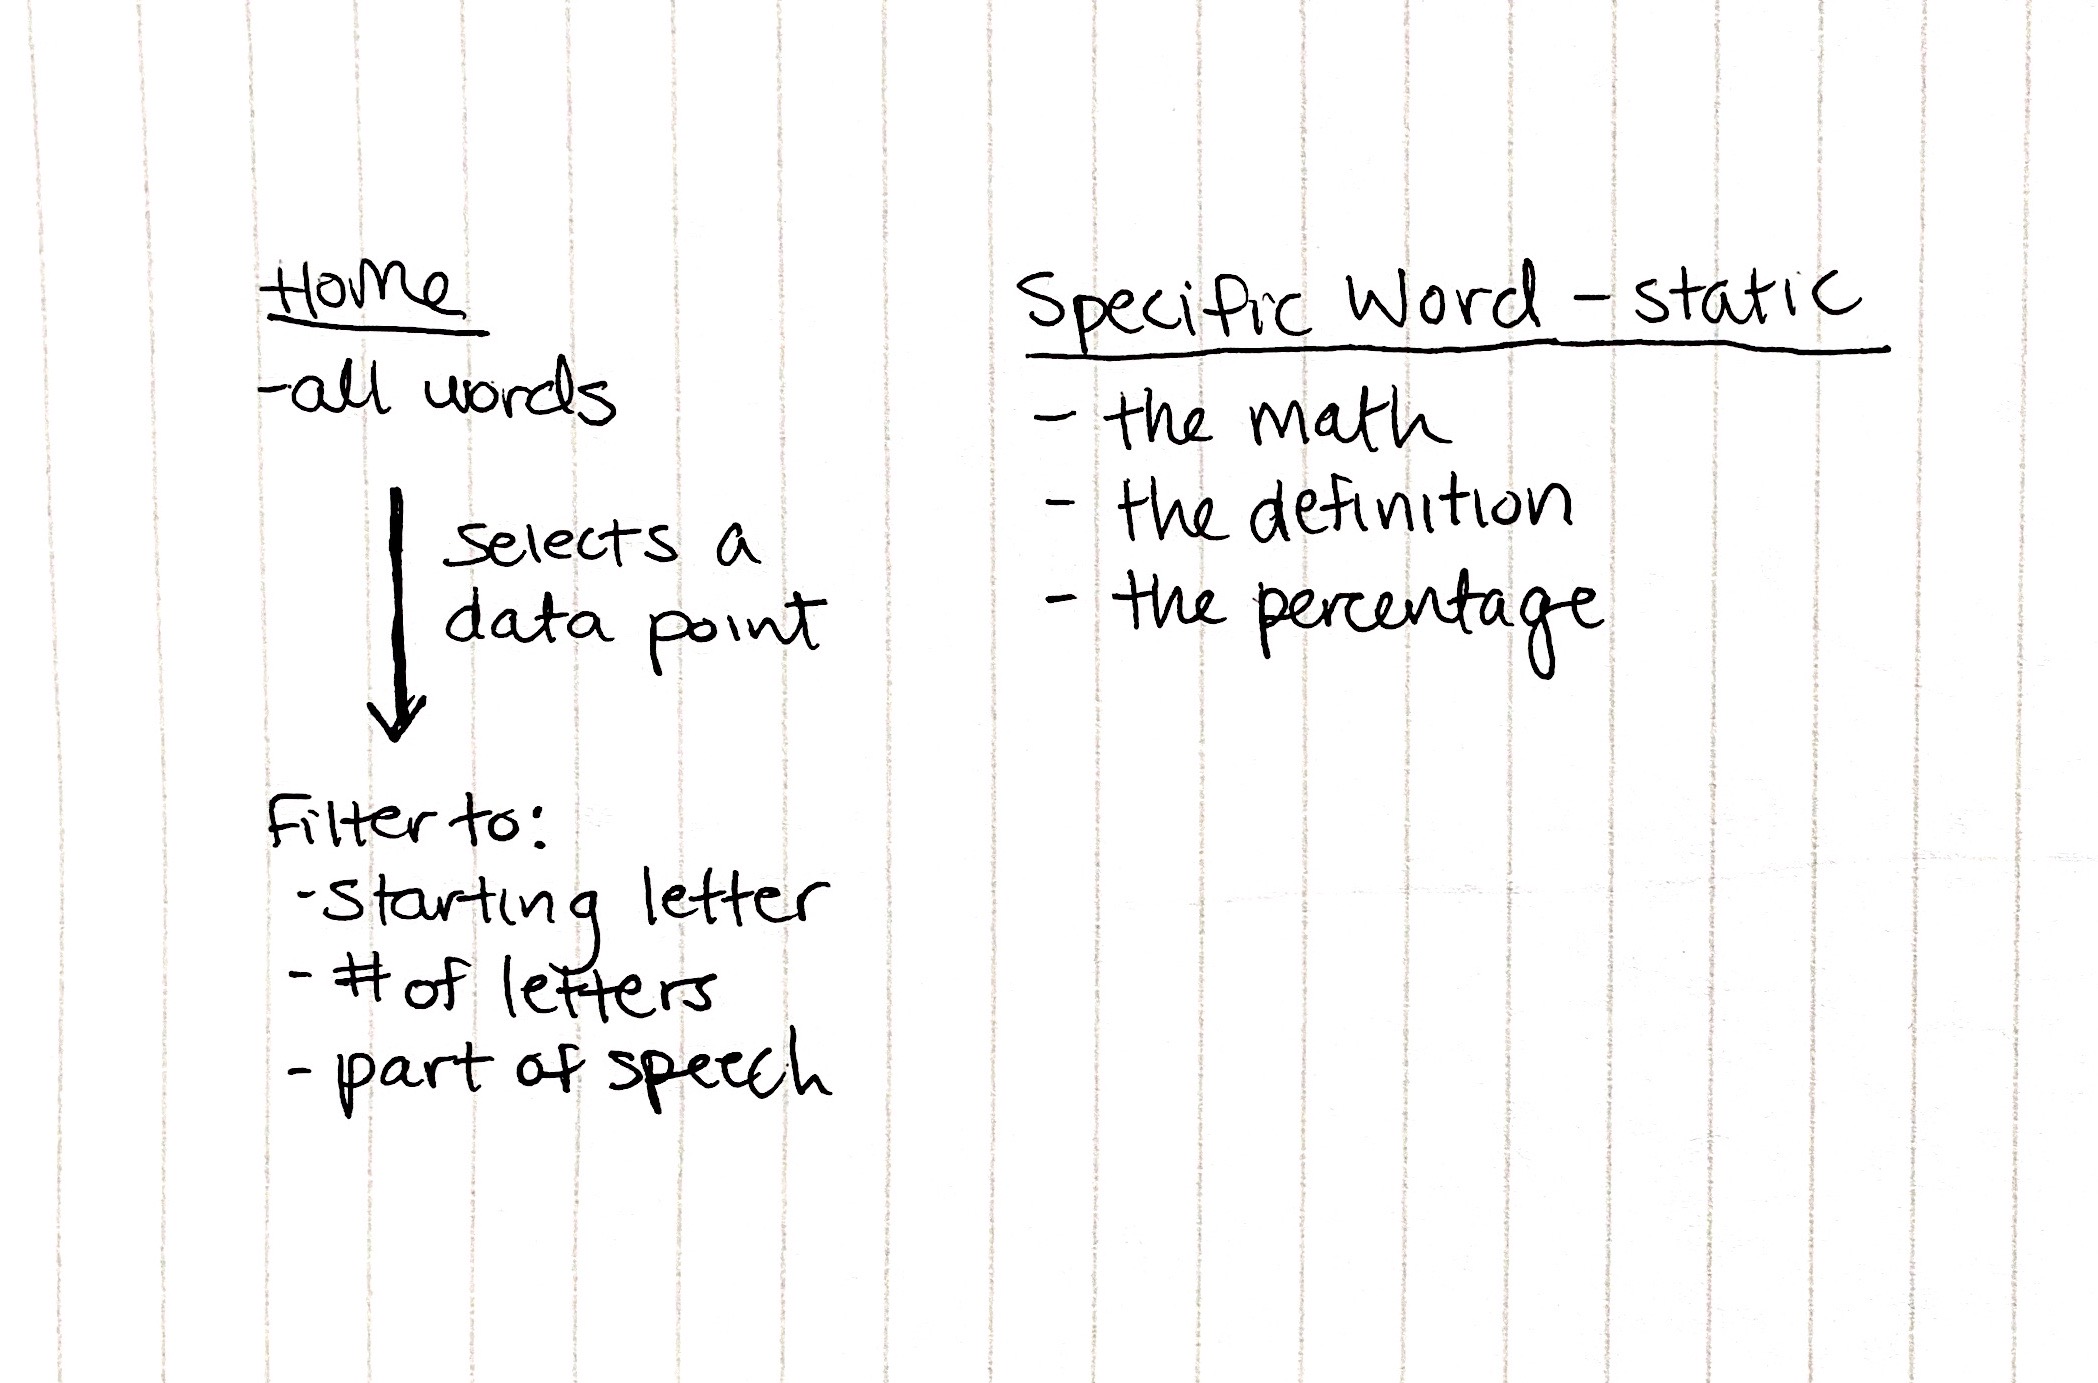 Home
-all words
selects a
data point
Filter to:
-starting letter
- # of letters
- part of speech
Specific Word - static
- the math
- the definition
- the percentage